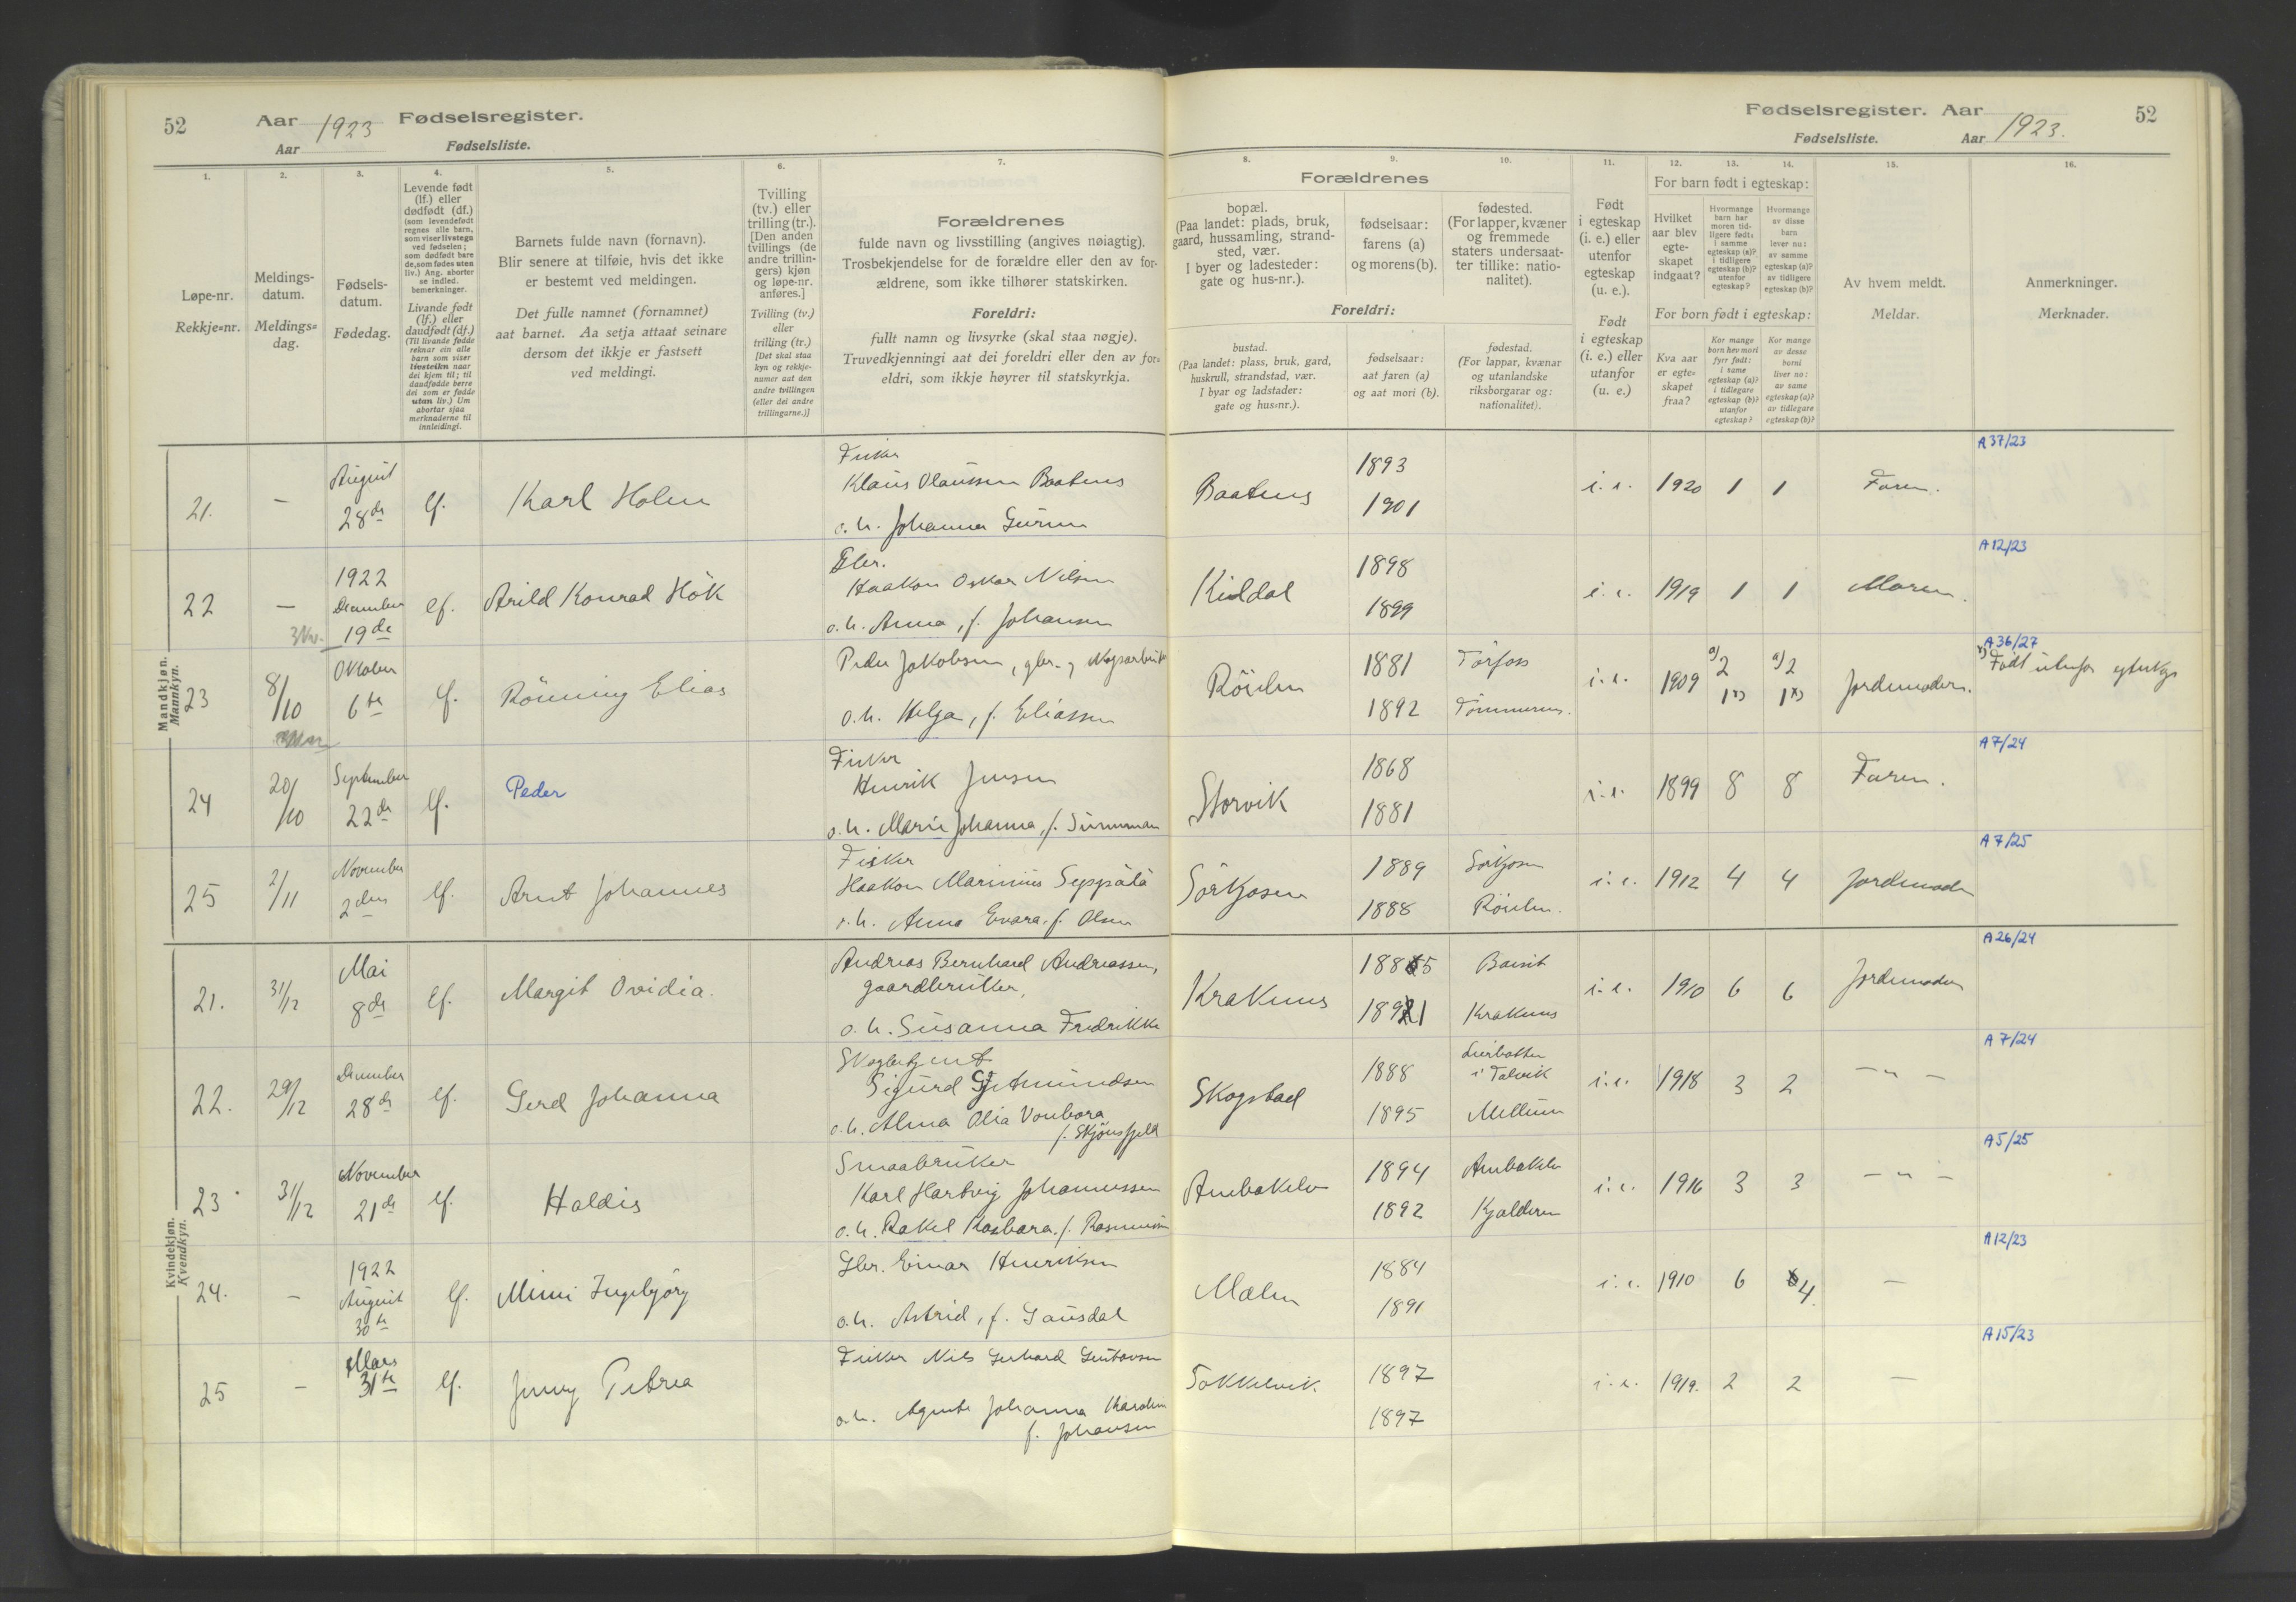 52
Aar 1923 Fødselsregister.
Aar
Fødselsliste.
Fødselsregister. Aar 1923.
Fødselsliste. Aar
52
1.
Løpe-nr.
Rekkje=nr.
2.
Meldings-
datum.
Meldings=
dag.
3.
Fødsels-
datum.
Fødedag.
4.
Levende født
(lf.) eller
dødfødt (df.)
(som levendefødt
regnes alle barn,
som viser livstegn
ved fødselen;
som dødfødt bare
de, som fødes uten
liv.) Ang. aborter
se indled.
bemerkninger.
Livande født
(lf.) eller
daudfødt (df.)
(Til livande fødde
reknar ein alle
barn som viser
livsteikn naar
dei kjem til; til
daudfødde berre
dei som er fødde
utan liv.) Um
abortar sjaa
merknaderne til
innleidingi.
5.
Barnets fulde navn (fornavn).
Blir senere at tilføie, hvis det ikke
er bestemt ved meldingen.
Det fulle namnet (fornamnet)
aat barnet. Aa setja attaat seinare
dersom det ikkje er fastsett
ved meldingi.
6.
Tvilling
(tv.) eller
trilling (tr.).
[Den anden
tvillings (de
andre trillin-
gers) kjøn
og løpe-nr.
anføres.]
Tvilling (tv.)
eller
trilling (tr.)
[Det skal staa
kyn og rekkje-
numer aat den
andre tvillingen
(eller dei andre
trillingarne.)]
7.
Forældrenes
fulde navn og livsstilling (angives nøiagtig).
Trosbekjendelse for de forældre eller den av for-
ældrene, som ikke tilhører statskirken.
Foreldri:
fullt namn og livsyrke (skal staa nøgje).
Truvedkjenningi aat dei foreldri eller den av for=
eldri, som ikkje høyrer til statskyrkja.
Forældrenes
8.
bopæl.
(Paa landet: plads, bruk,
gaard, hussamling, strand-
sted, vær.
I byer og ladesteder:
gate og hus-nr.).
9.
fødselsaar:
farens (a)
og morens (b).
10.
fødested.
(For lapper, kvæner
og fremmede
staters undersaat-
ter tillike: natio-
nalitet).
Foreldri:
bustad.
(Paa landet: plass, bruk, gard,
huskrull, strandstad, vær.
I byar og ladstader:
gate og hus=nr.).
fødselsaar:
aat faren (a)
og aat mori (b).
fødestad.
(For lappar, kvænar
og utanlandske
riksborgarar og:
nationalitet).
11.
Født
i egteskap
(i. e.) eller
utenfor
egteskap
(u. e.).
Født
i egteskap
(i. e.) eller
utanfor
(u. e.)
12.
13.
14.
For barn født i egteskap:
Hvilket
aar blev
egte-
skapet
indgaat?
Hvormange
barn har
moren tid-
ligere født:
i samme
egteskap (a)?
i tidligere
egteskap (b)?
utenfor
egteskap?
Hvormange
av disse
barn
lever nu:
av samme
egteskap (a)?
av tidligere
egteskap (b)?
For born født i egteskap:
Kva aar
er egte=
skapet
fraa?
Kor mange
born hev mori
fyrr født:
i same
egteskap (a)?
i tidlegare
egteskap (b)?
utanfor
egteskap?
Kor mange
av desse
borni
liver no:
av same
egteskap (a)?
av tidlegare
egteskap (b)?
15.
Av hvem meldt.
Meldar.
16.
Anmerkninger.
Merknader.
Mandkjøn.
Mannkyn.
21. – August 28de lf. Karl Holm Fisker
Klaus Olaussen Baatnes
o. h. Johanna
Baatnes 1893 1901 i. e. 1920 1 1 Faren. A 37/23
22 – 1922 December 19de lf. Arild Konrad Hök Gbr.
Haakon Oskar Nilsen
o. h. Anna, f. Johansen
Kildal 1898 1899 i. e. 1919 1 1 Moren. A 12/23
23 8/10 Oktober 6te lf. Rönning Elias Peder Jakobsen, gbr. &
o. h. Helga, f. Eliassen
Röielen 1881 1892 i. e. 1909 a) 2 1 x) a) 2 1 x) Jordemoderen. A 36/27
x) Født utenfor egteskap
24 20/10 September 22de lf. Peder Fisker
Henrik Jensen
o. h. Marie Johanna, f.
Storvik 1868 1881 i. e. 1899 8 8 Faren. A 7/24
25 2/11 November 2den lf. Arnt Johannes Fisker
Haakon Marinius Seppälä
o. h. Anna Evara, f. Olsen
Sörkjosen 1889 1888 Sörkjosen Röielen. i. e. 1912 4 4 Jordemoder A 7/25
Kvindekjøn.
Kvendkyn.
21. 31/12 Mai 8de lf. Margit Ovidia. Andreas Bernhard Andreassen,
gaardbruker,
o. h. Susanna Fredrikke
Kraknes 1885 1891 Kraknes i. e. 1910 6 6 Jordemoder A 26/24
22. 29/12 December 28de lf. Gerd Johanna Skogbetjent
Sigurd Amundsen
o. h. Alma Olia Vonbora
f. Skjönsfjeld
Skogstad 1888 1895 i Talvik i. e. 1918 3 2 – " – A 7/24
23. 31/12 November 21de lf. Haldis Smaabruker
Karl Hartvig Johannessen
o. h. Rakel Kasbara, f. Rasmussen
1894 1892 Kjelderen i. e. 1916 3 3 – " – A 5/25
24. – 1922 August 30te lf. Mimi Ingebjörg Gbr. Einar Henriksen
o. h. Astrid, f. Gausdal
Mælen 1884 1891 i. e. 1910 6 4. – A 12/23
25 – Mars 31te lf. Jenny Petrea Fisker Nils Gerhard Gustavsen
o. h. Agnete Johanna Karoline
f. Johansen
Sokkelvik. 1897 1897 i. e. 1919. 2 2 – A 15/23